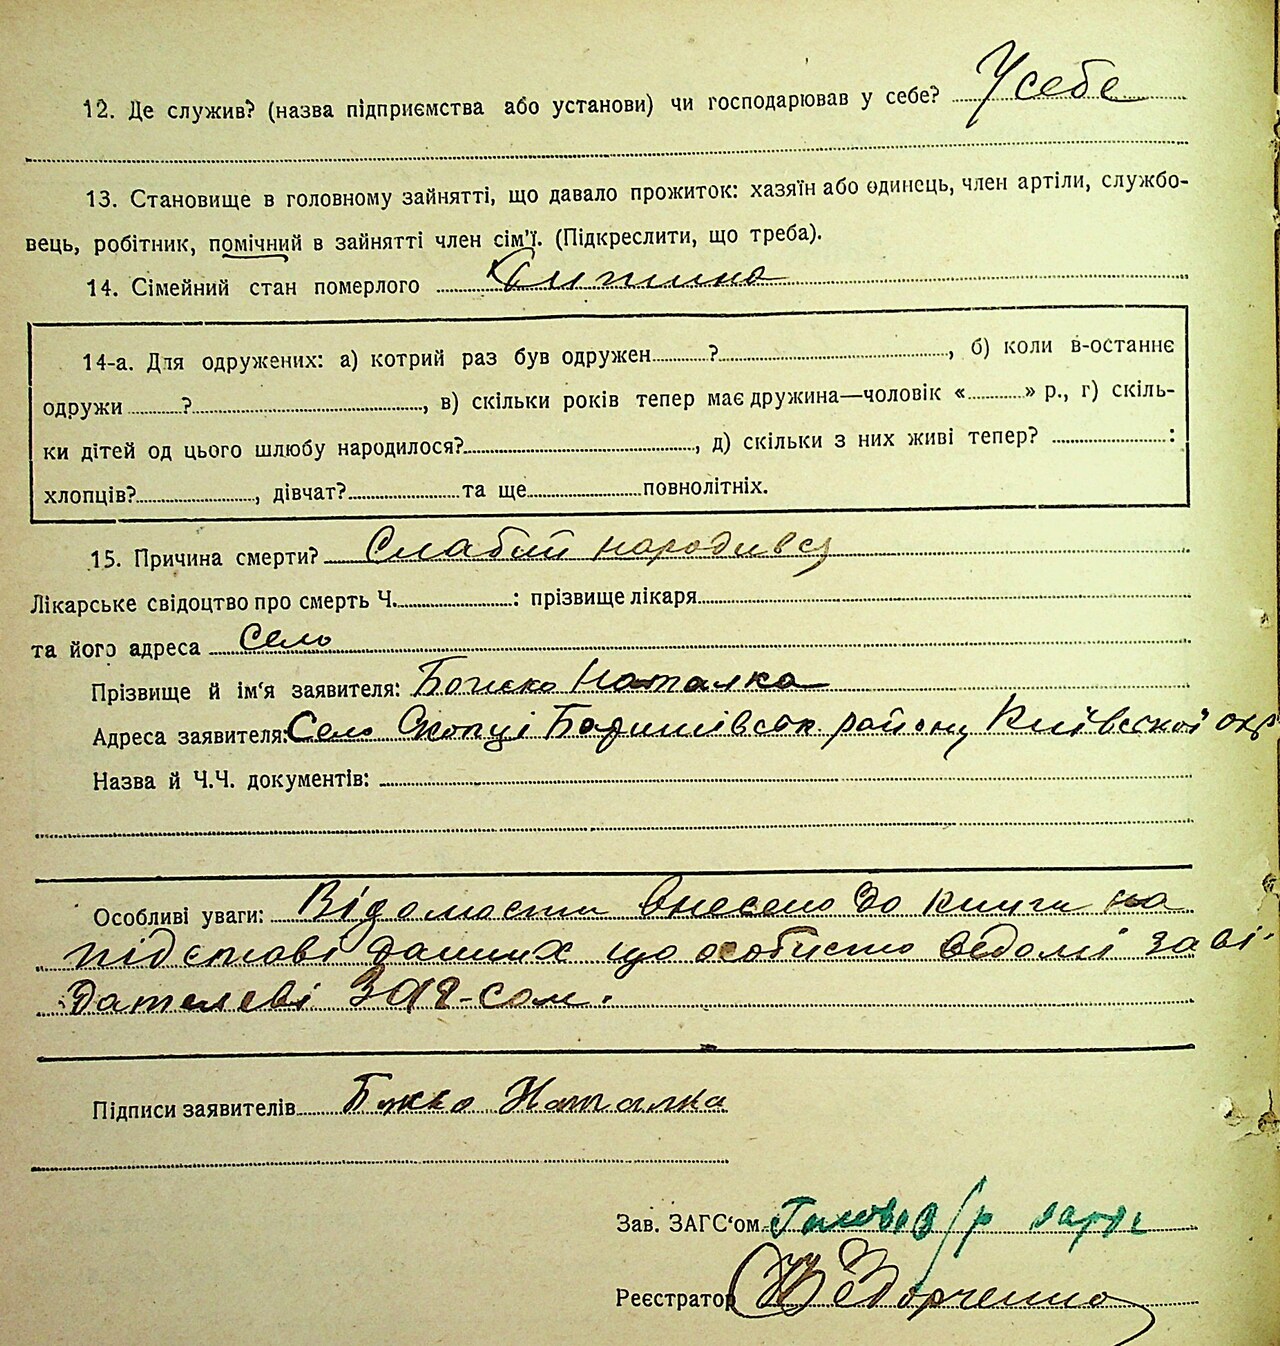 12. Де служив? (назва підприємства або установи) чи господарював у себе? У себе
13. Становище в головному зайнятті, що давало прожиток: хазяїн або одинець, член артілі, службо-
вець, робітник, помічний в зайнятті член сім'ї. (Підкреслити, що треба).
14. Сімейний стан померлого Дитина
14-а. Для одружених: а) котрий раз був одружен ? , б) коли в-останнє
одружи ? , в) скільки років тепер має дружина—чоловік « » р., г) скіль-
ки дітей од цього шлюбу народилося? , д) скільки з них живі тепер? :
хлопців? , дівчат? та ще повнолітніх.
15. Причина смерти? Слабий народився
Лікарське свідоцтво про смерть Ч. : прізвище лікаря
та його адреса село
Прізвище й ім'я заявителя: Наталка
Адреса заявителя: Село Скопці району Київської окр
Назва й Ч.Ч. документів:
Особливі уваги: Відомости внесено до книги на
підставі данних що особисто відомі заві-
дателеві ЗАГ-сом.
Підписи заявителів Наталка
Зав. ЗАГС'ом Голова с/р
Реєстратор